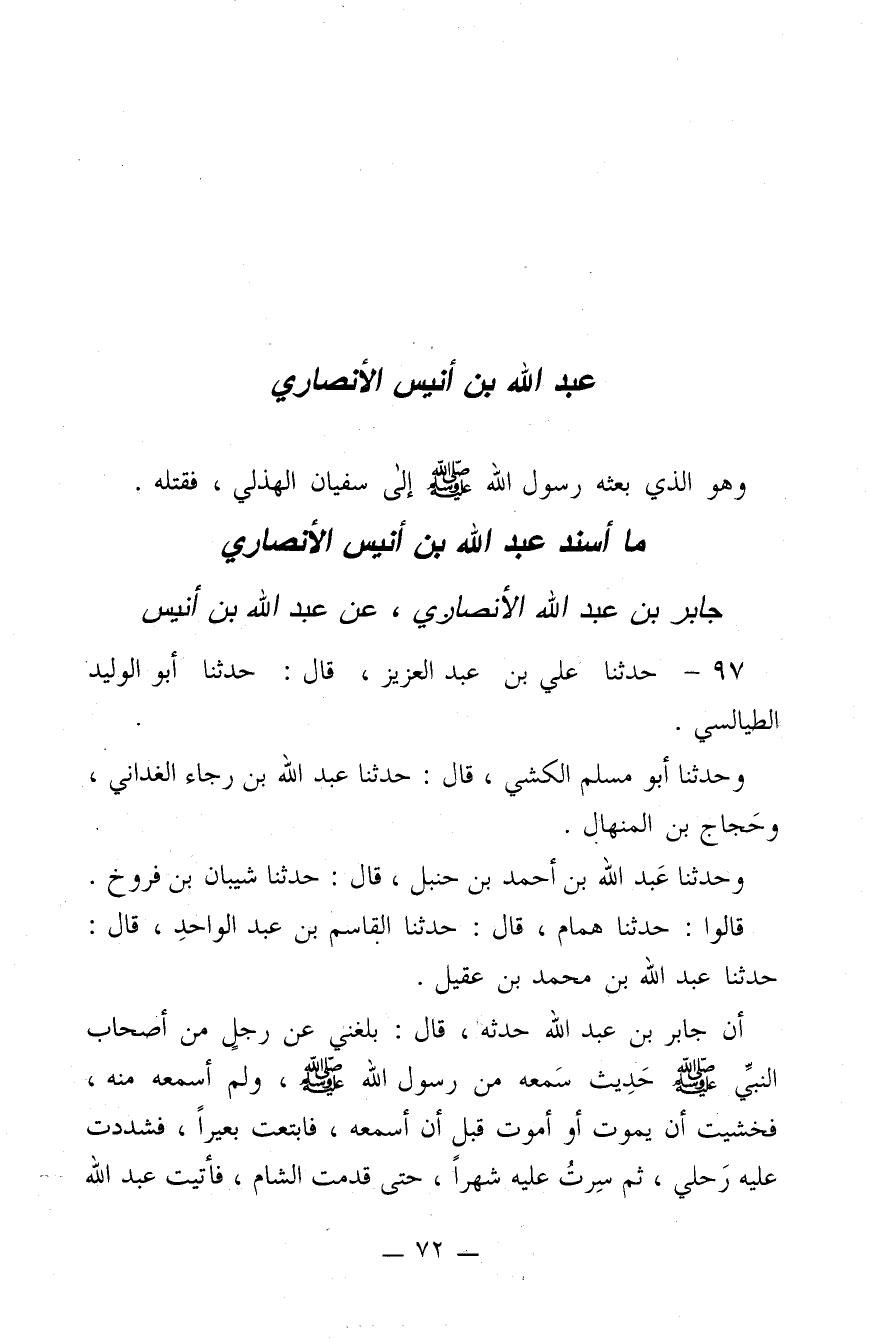 عبد الله بن أنيس الأنصاري
وهو الذي بعثه رسول الله ﷺ إلىٰ سفيان الهذلي ، فقتله .
ما أسند عبد الله بن أنيس الأنصاري
جابر بن عبد الله الأنصاري ، عن عبد الله بن أنيس
٩٧ – حدثنا علي بن عبد العزيز ، قال : حدثنا أبو الوليد
الطيالسي .
وحدثنا أبو مسلم الكشي ، قال : حدثنا عبد الله بن رجاء الغداني ،
وحَجاج بن المنهال .
وحدثنا عَبد الله بن أحمد بن حنبل ، قال : حدثنا شيبان بن فروخ .
قالوا : حدثنا همام ، قال : حدثنا القاسم بن عبد الواحدِ ، قال :
حدثنا عبد الله بن محمد بن عقيل .
أن جابر بن عبد الله حدثه ، قال : بلغني عن رجلٍ من أصحاب
النبيِّ ﷺ حَدِيث سَمعه من رسول الله ﷺ ، ولم أسمعه منه ،
فخشيت أن يموت أو أموت قبل أن أسمعه ، فابتعت بعيراً ، فشددت
عليه رَحلي ، ثم سِرتُ عليه شهراً ، حتى قدمت الشام ، فأتيت عبد الله
— ٧٢ —